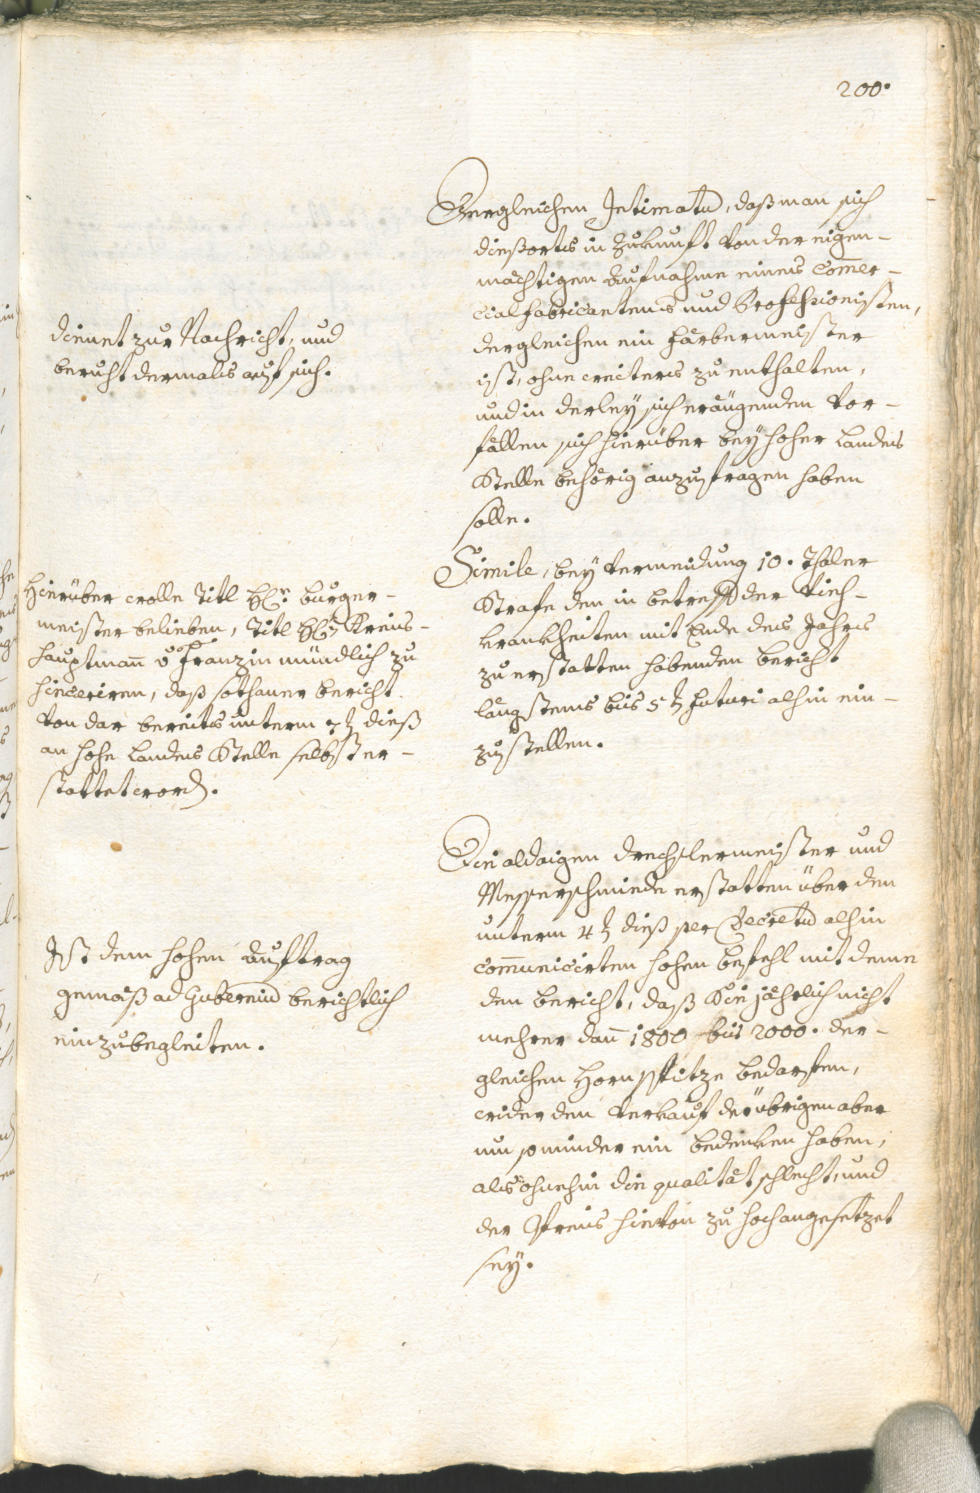 200.
Dergleichen Intimatũ, daß man sich
dießorts in Zukunft von der eigen-
mächtigen Aufnahme eines Com̄er-
cialfabricantens und Professionisten,
dergleichen ein Färbermeister
ist, ohne weiters zu enthalten,
und in derleÿ sich eräugenden Vor-
fällen sich hierüber beÿ hoher Landes
Stelle behörig anzufragen haben
solle.
dienet zur Nachricht, und
beruht dermals auf sich.
Simile, beÿ Vermeidung 10. Thaler
Strafe den in betreff der Vieh-
krankheiten mit Ende des Jahrs
zu erstatten habenden bericht
längstens bis 5t futuri alhin ein-
zustellen.
Hierüber wolle Titl H. burger-
meister belieben, Titl H. Kreis-
hauptman̄ v Franzin mündlich zu
sinceriren, daß sothaner bericht
von dar bereits unterm 7t dieß
an hohe Landes Stelle selbst er-
stattet word.
Die aldaigen Drechslermeister und
Messerschmiede erstatten über den
unterm 4t dieß per Decretũ alhin
com̄unicirten hohen befehl mit deme
den bericht, daß Sie jährlich nicht
mehrer dan̄ 1800 bis 2000. der-
gleichen Hornspitze bedarften,
wider den Verkauf der übrigen aber
um so minder ein bedenken haben,
als ohnehin die qualität schlecht, und
der Preis hievon zu hoch angesetzet
seÿ.
Ist dem hohen Auftrag
gemäß ad Guberniũ berichtlich
einzubegleiten.